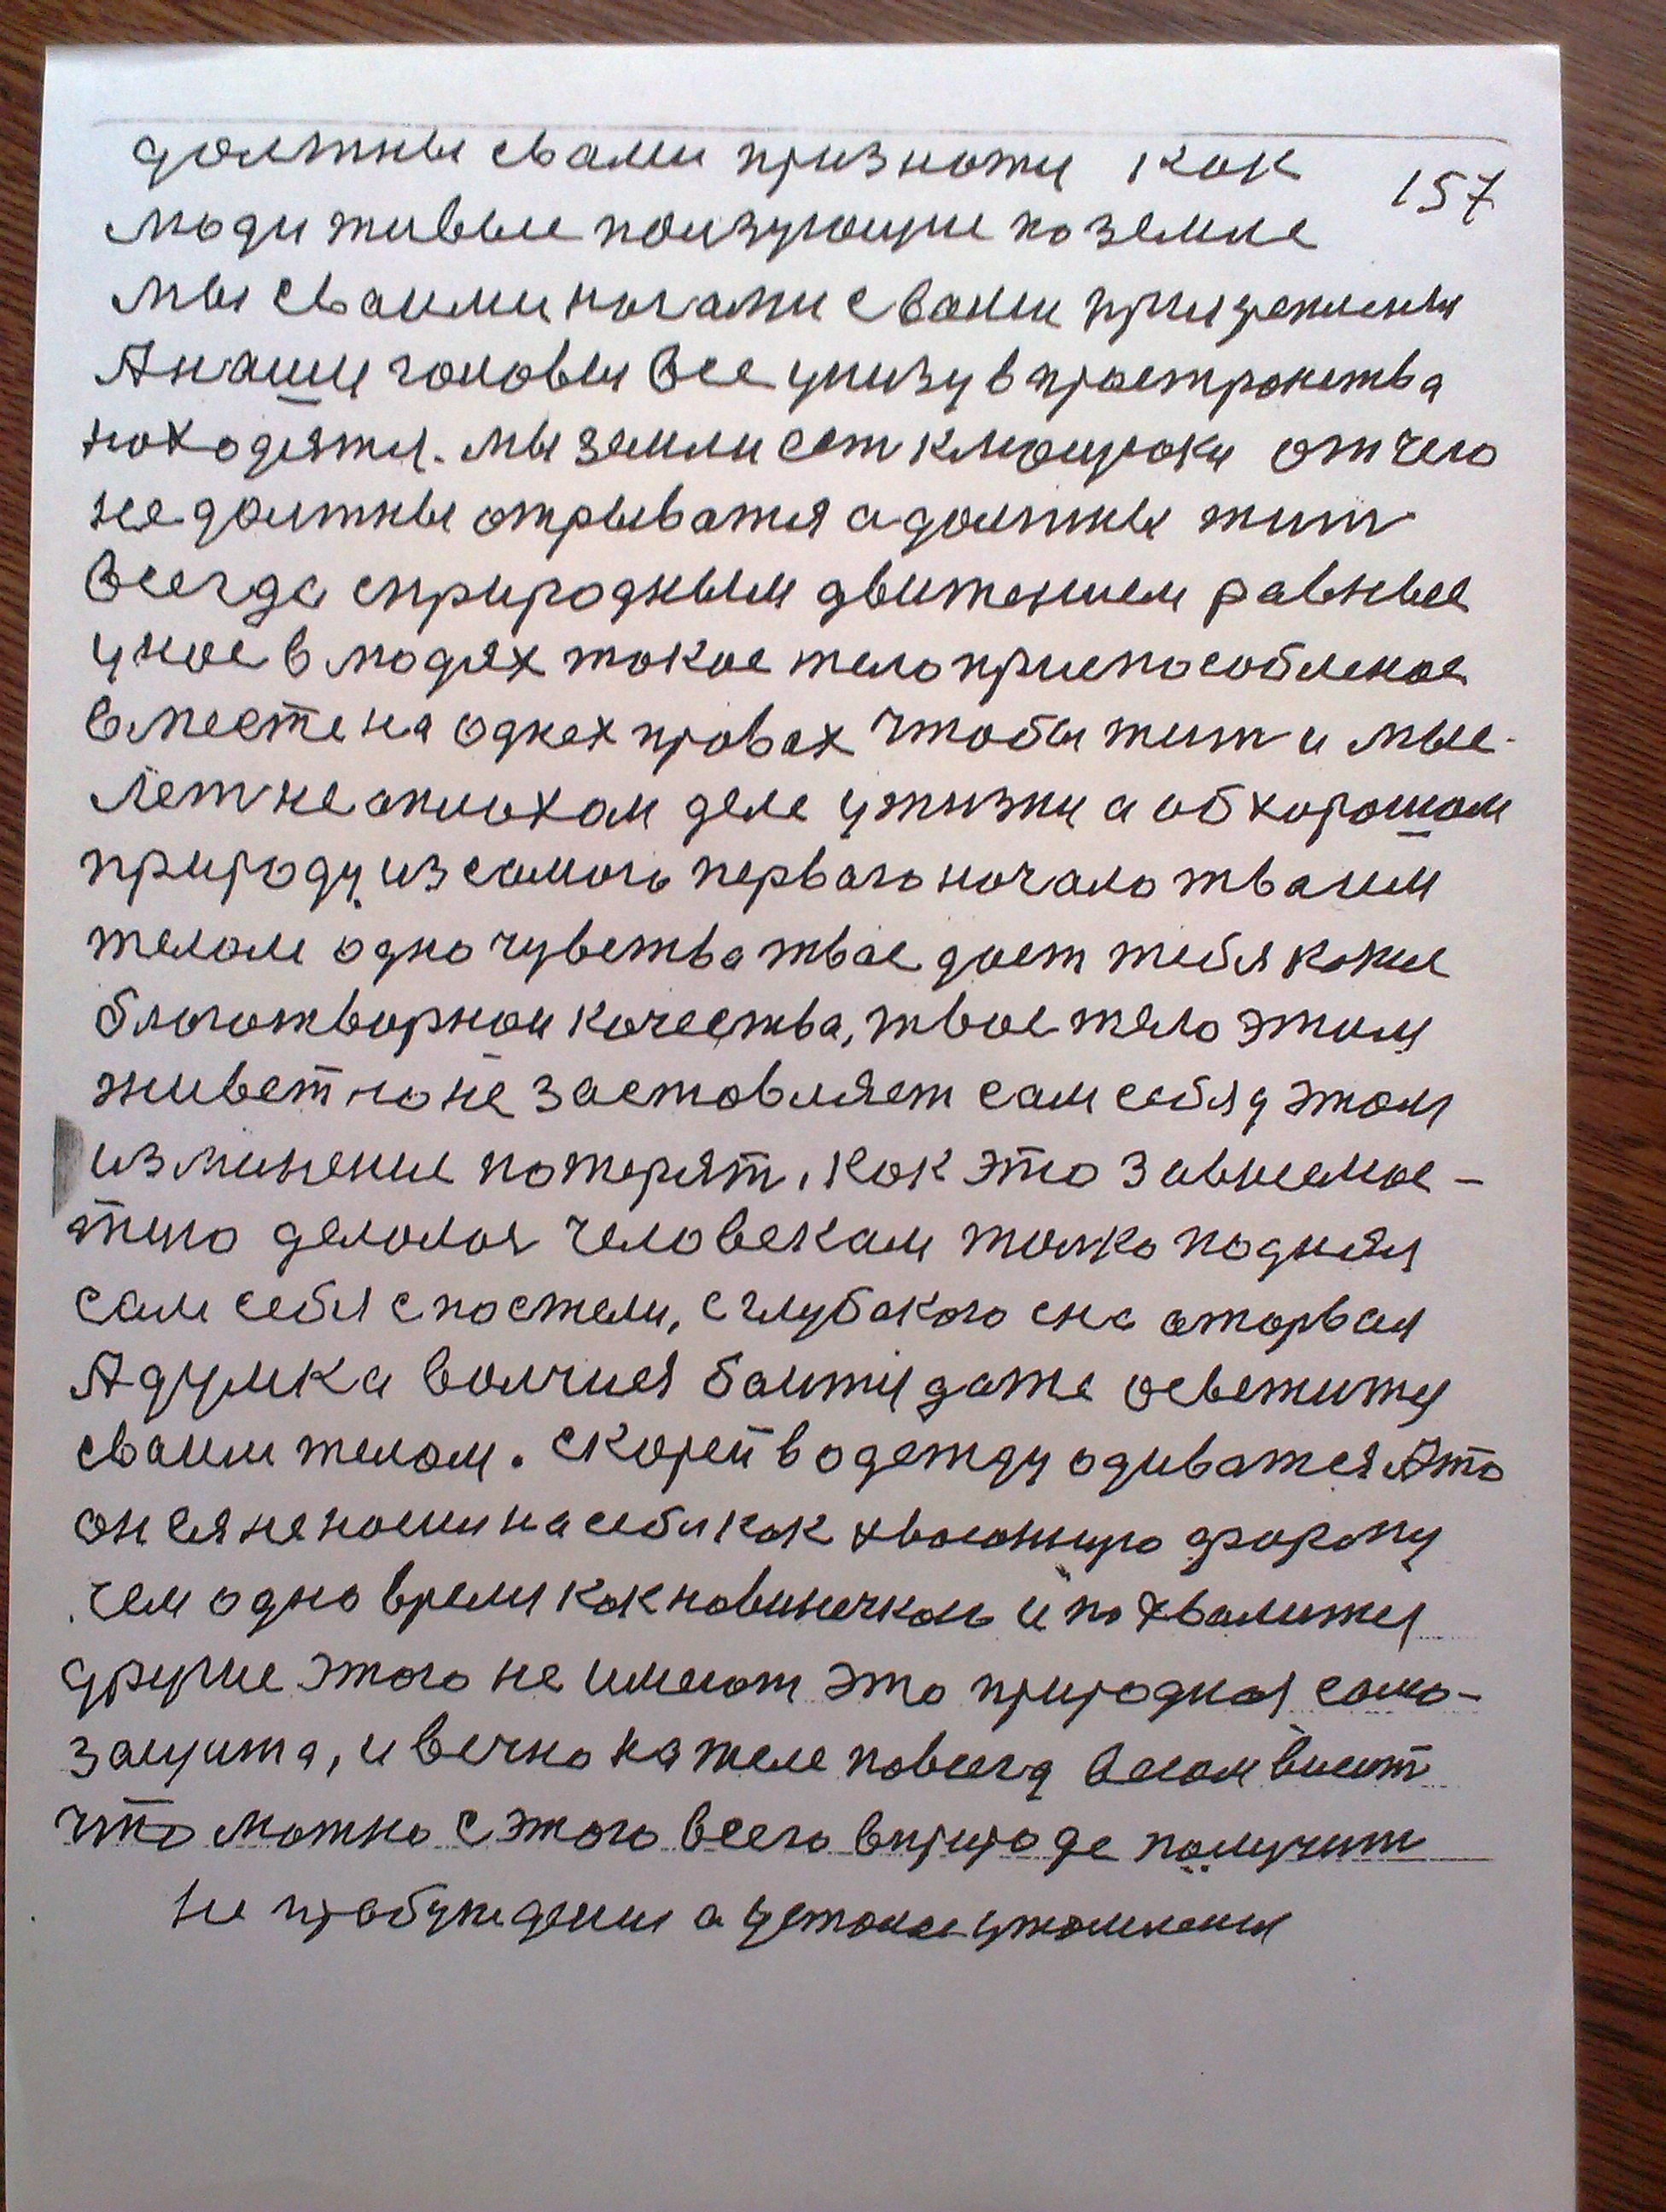 должны свами признати как
157
люди живые ползующие по земле
мы сваими ногами свами прикреплены
А наши головы все унизу в прастранства
находятся. мы земли ест отчего
не должны отрыватся а должны жит
всегда сприродным движением равные
у нас в людях такое тело приспособленое
вместе на однех правах чтобы жит и мыс-
лет не аплохам деле у жизни а об хорошом
природу из самого первого начало тваим
телом одно чувства твае дает тебя какие
благотворнои качества, твое тело этим
живет но не заставляет сам себя у этом
изминение потерят. как это
делалоя человекам толко поднял
сам себя спостели, с глубокого сна аторвал
А думка боится даже освежится
сваим телом. скорей в одежду одиватся А то
он ея не носи на себя как форму
чем одно время как новиничкаю и похвалится
другие этого не имеют это природная само-
защита, и вечно на теле висит
что можно с этого всего вприроде получит
не пробуждения а